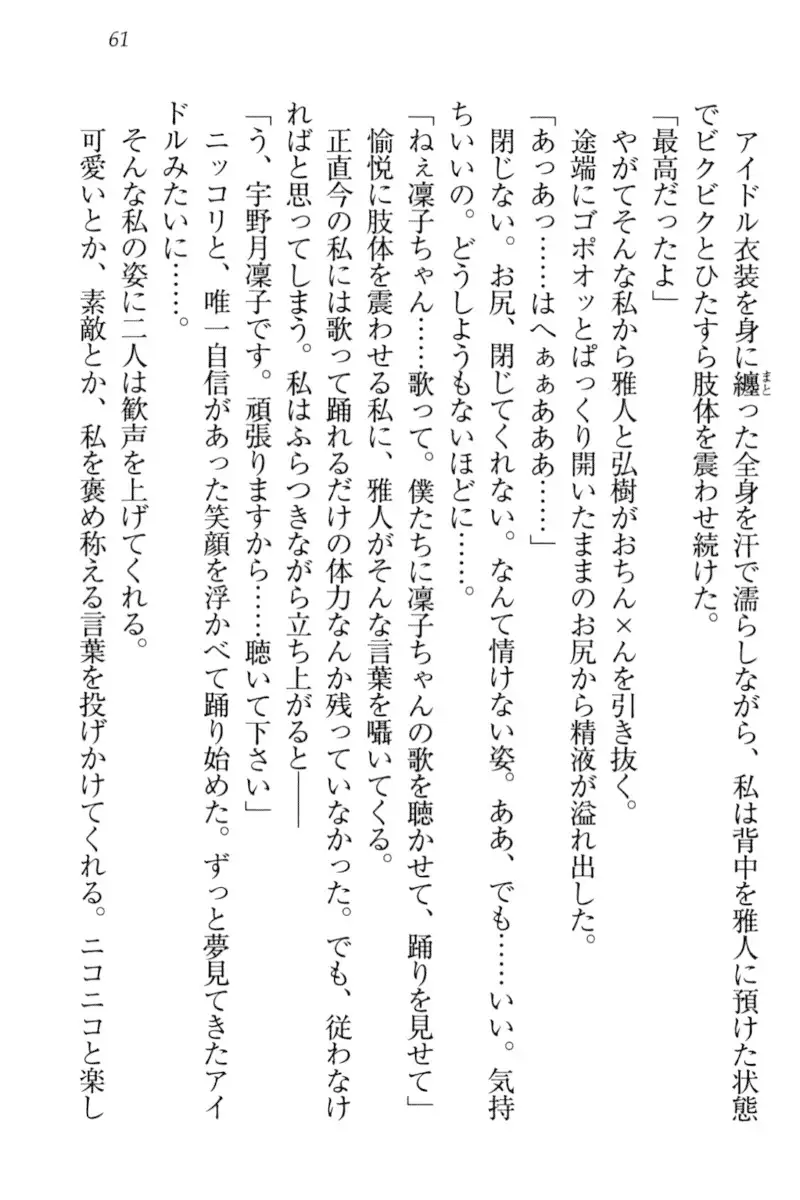 61
アイドル衣装を身に纏った全身を汗で濡らしながら、私は背中を雅人に預けた状態
でビクビクとひたすら肢体を震わせ続けた。
「最高だったよ」
やがてそんな私から雅人と弘樹がおちん×んを引き抜く。
途端にゴポオッとぱっくり開いたままのお尻から精液が溢れ出した。
「あっあっ……はへぁぁあああ……」
閉じない。お尻、閉じてくれない。なんて情けない姿。ああ、でも……いい。気持
ちいいの。どうしようもないほどに……。
「ねぇ凜子ちゃん……歌って。僕たちに凜子ちゃんの歌を聴かせて、踊りを見せて」
愉悦に肢体を震わせる私に、雅人がそんな言葉を囁いてくる。
正直今の私には歌って踊れるだけの体力なんか残っていなかった。でも、従わなけ
ればと思ってしまう。私はふらつきながら立ち上がると――
「う、宇野月凜子です。頑張りますから……聴いて下さい」
ニッコリと、唯一自信があった笑顔を浮かべて踊り始めた。ずっと夢見てきたアイ
ドルみたいに……。
そんな私の姿に二人は歓声を上げてくれる。
可愛いとか、素敵とか、私を褒め称える言葉を投げかけてくれる。ニコニコと楽し